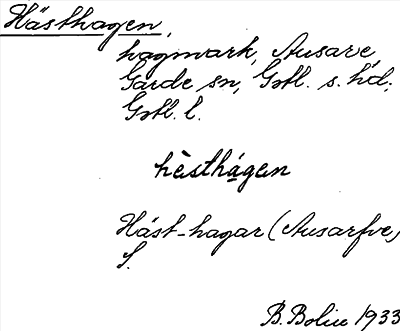 Hästhagen,
hagmark, Ausarve,
Garde sn, Gotl. s. hd.
Gotl. l.
hèsthágen
Häst-hagar (Ausarfve)
S.
B. Bolin 1933